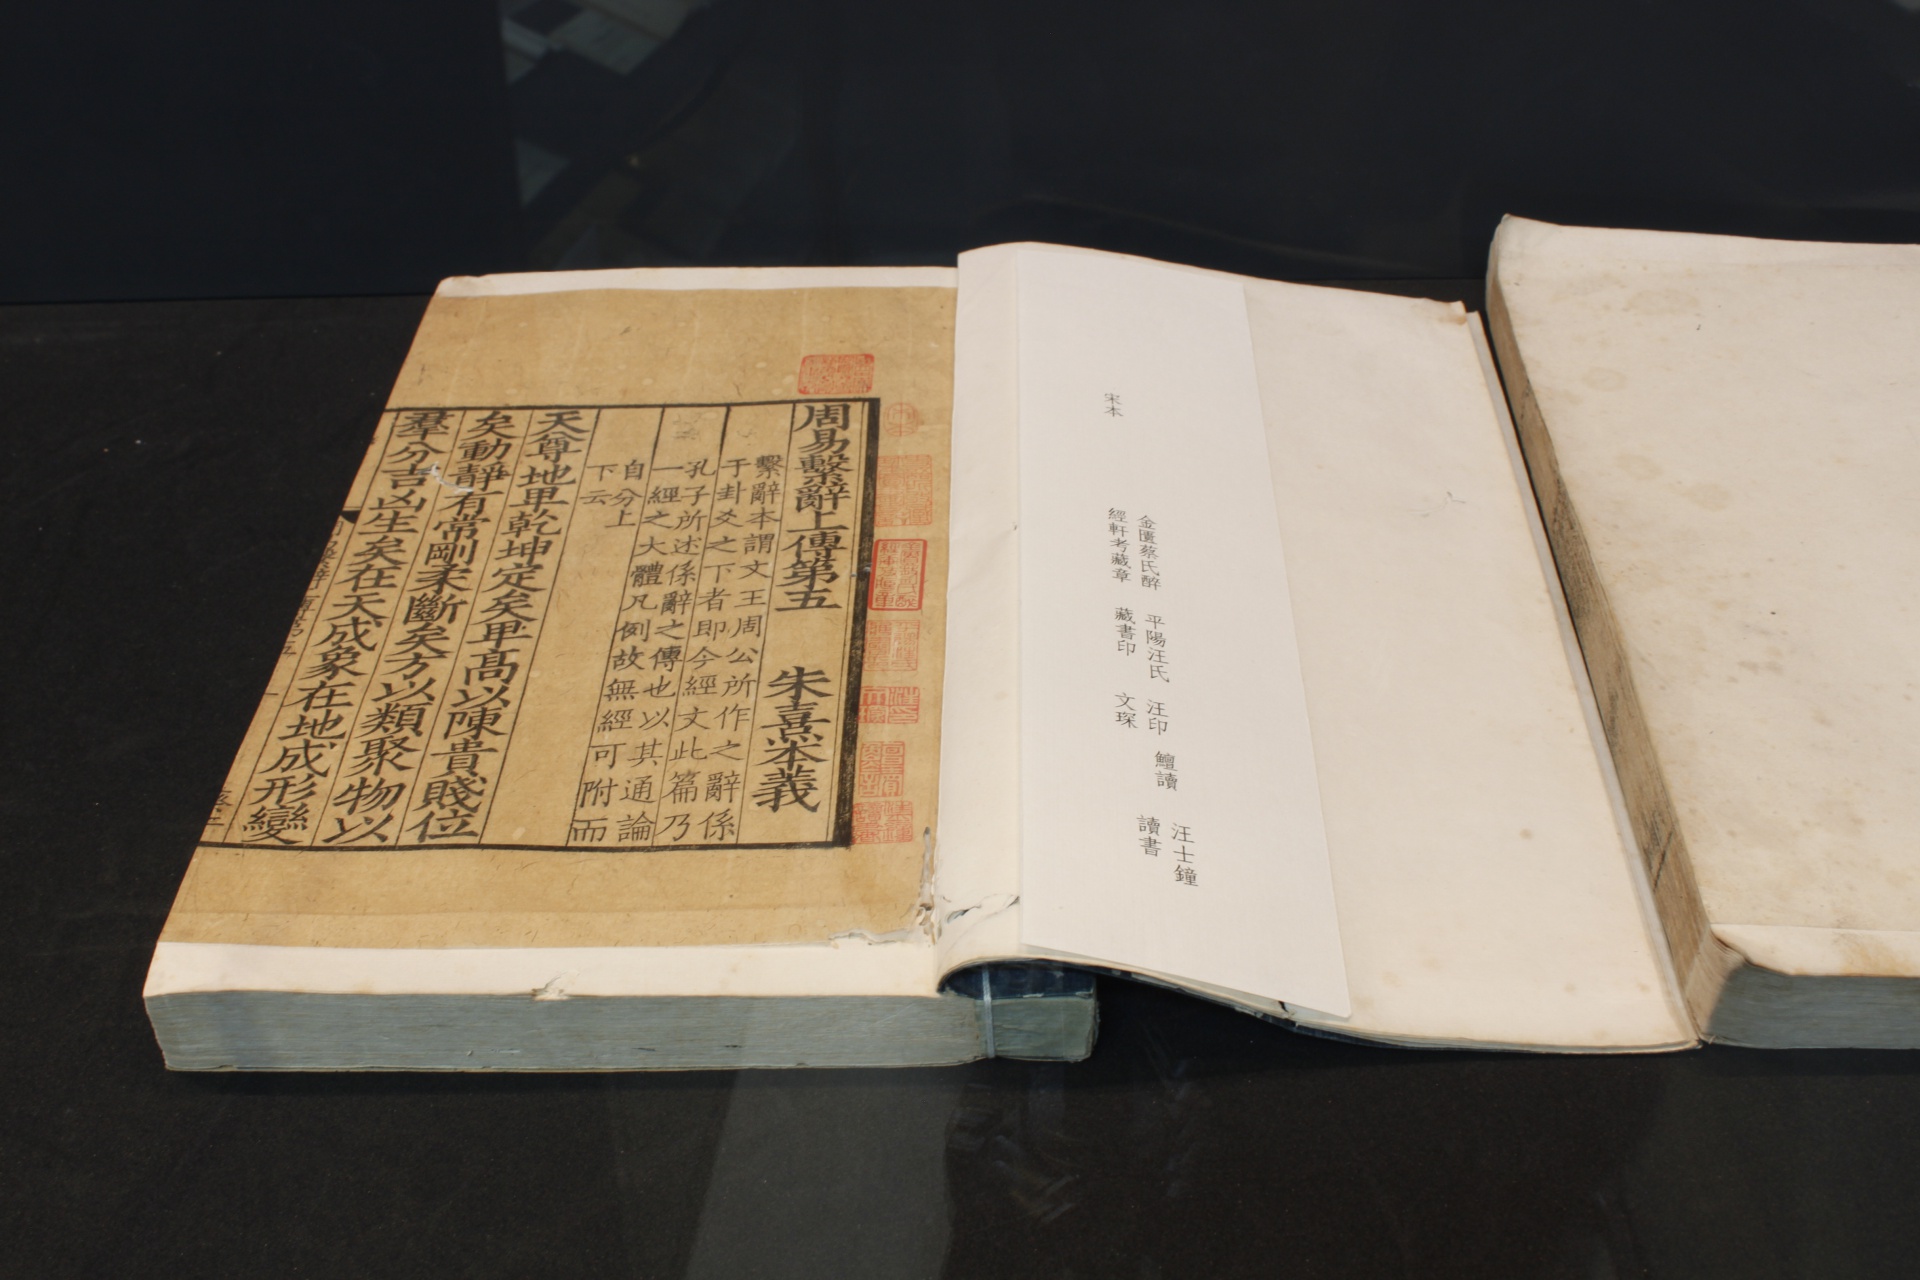 宋本
金匱蔡氏醉
經軒考藏章
平陽汪氏
藏書印
汪印
文琛
鱣讀
汪士鐘
讀書
周易繫辭上傳第五 朱熹本義
繫辭本謂文王周公所作之辭係
于卦爻之下者即今經文此篇乃
孔子所述係辭之傳也以其通論
一經之大體凡例故無經可附而
自分上
下云
天尊地卑乾坤定矣卑髙以陳貴賤位
矣動靜有常剛柔斷矣方以類聚物以
羣分吉凶生矣在天成象在地成形變